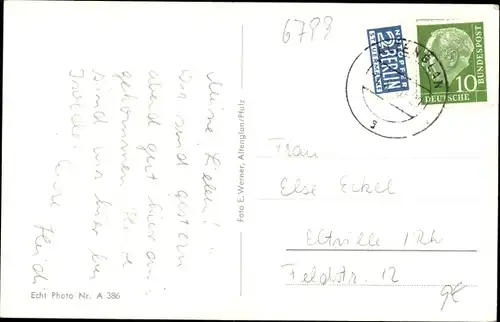 6789
Meine Lieben!
Wir sind gestern
abend gut hier an-
gekommen. Heute
sind wir hier bei
Eure Heidi
Echt Photo Nr. A 386
Foto E. Werner, Altenglan/Pfalz
NOTOPFER
2 BERLIN
STEUERMARKE
ENGLAN
10
DEUTSCHE
BUNDESPOST
Frau
Else Eckel
Eltville / Rh
Feldstr. 12